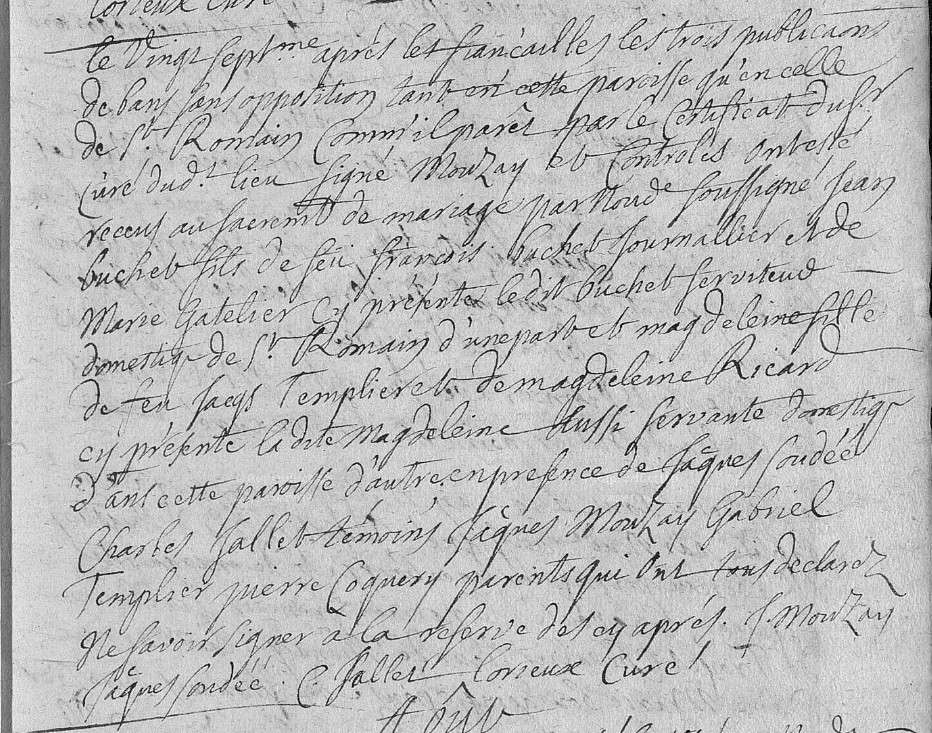 Lorieux Curé
le Vingt Sept.me aprés les fiancailles les trois publicaons
de bans sans opposition tant en cette paroisse qu'en celle
de St. Romain Comm'il parêt par le Certificat du Sr
Curé dud.t lieu signé Mouzay et Controlés ont esté
receus au sacremt de mariage par Nous Soussigné Jean
buchet fils de feu françois buchet Journallier et de
Marie Gatelier Cy présente ledit buchet serviteur
domestiq de St. Romain d'une part et magdeleine fille
de feu Jacqs Templier et de magdeleine Ricard
cy présente ladite Magdeleine Aussi servante domestiq
d'ans cette paroisse d'autre en presence de Jâques soudée
Charles Sallet témoins Jâques Mouzay Gabriel
Templier pierre Coquery parents qui ont tous declarez
Ne savoir signer a la reserve des cy aprés. J. Mouzay
Jâques soudéé. C Sallet Lorieux Curé
Aout